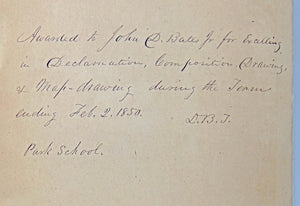 Awarded to John D. Bates Jr for Excelling
in Declamation, Composition, Drawing,
& Map-drawing during the Term
ending Feb. 2. 1850.
D.B.T.
Park School.